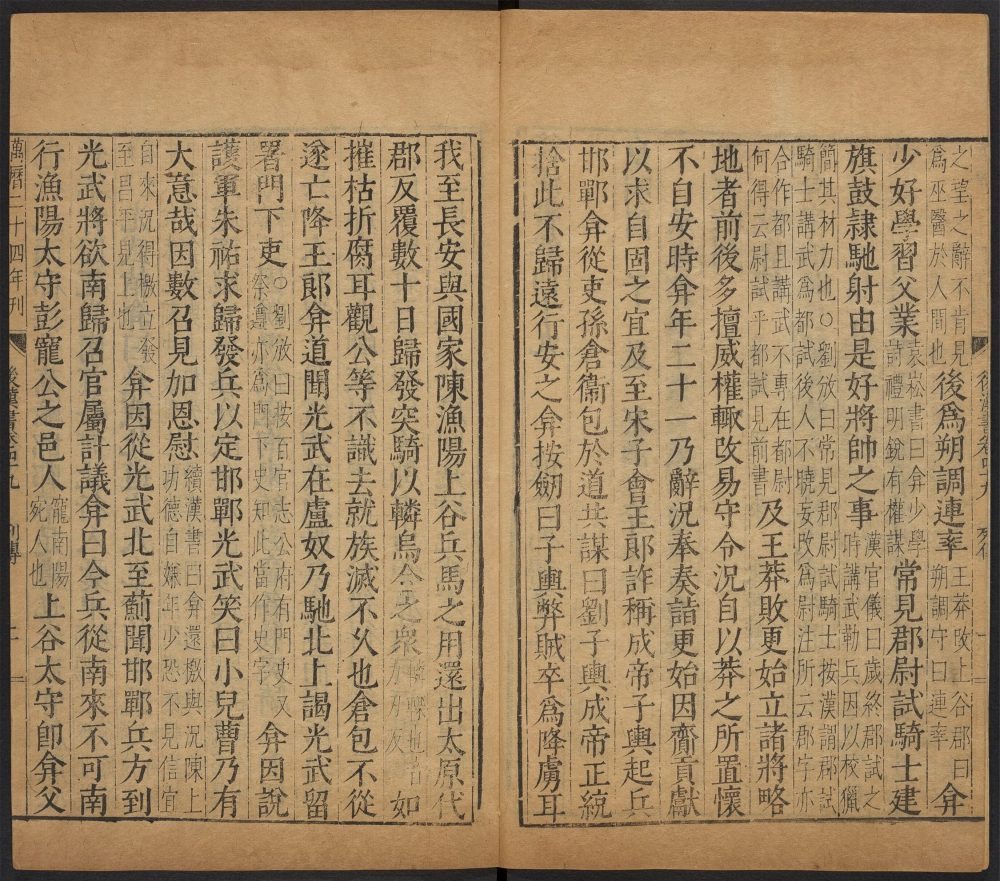 之望之辭不肯見
爲巫醫於人間也
後爲朔調連率
王莽改上谷郡曰
朔調守曰連率
弇
少好學習父業
袁崧書曰弇少學
詩禮明銳有權謀
常見郡尉試騎士建
旗鼓隷馳射由是好將帥之事
漢官儀曰歲終郡試之
時講武勒兵因以校獵
簡其材力也〇劉攽曰常見郡尉試騎士按漢謂郡試
騎士講武爲都試後人不曉妄改爲尉注所云郡字亦
合作都且講武不專在都尉
何得云尉試乎都試見前書
及王莽敗更始立諸將略
地者前後多擅威權輒改易守令況自以莽之所置懷
不自安時弇年二十一乃辭況奉奏詣更始因齎貢獻
以求自固之宜及至宋子會王郎詐稱成帝子子輿起兵
邯鄲弇從吏孫倉衞包於道共謀曰劉子輿成帝正統
捨此不歸遠行安之弇按劒曰子輿弊賊卒爲降虜耳
我至長安與國家陳漁陽上谷兵馬之用還出太原代
郡反覆數十日歸發突騎以轔烏合之衆
如
摧枯折腐耳觀公等不識去就族滅不久也倉包不從
遂亡降王郎弇道聞光武在盧奴乃馳北上謁光武留
署門下吏
〇劉攽曰按百官志公府有門下史又
祭遵亦爲門下史知此當作史字
弇因說
護軍朱祐求歸發兵以定邯鄲光武笑曰小兒曹乃有
大意哉因數召見加恩慰
續漢書曰弇還檄與況陳上
功德自嫌年少恐不見信宜
自來況得檄立發
至昌平見上也
弇因從光武北至薊聞邯鄲兵方到
光武將欲南歸召官屬計議弇曰今兵從南來不可南
行漁陽太守彭寵公之邑人
寵南陽
宛人也
上谷太守卽弇父
萬曆二十四年刊